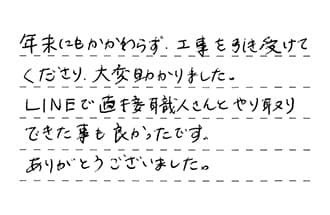 年末にもかかわらず、工事を引き受けて
くださり、大変助かりました。
LINEで直接職人さんとやり取り
できた事も良かったです。
ありがとうございました。